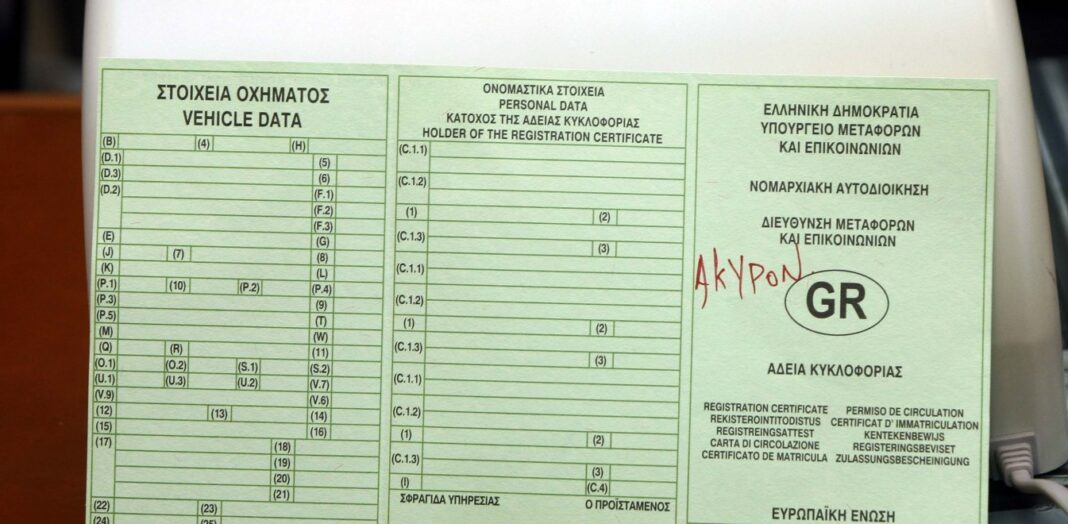 ΣΤΟΙΧΕΙΑ ΟΧΗΜΑΤΟΣ
VEHICLE DATA
(B) (4) (H)
(D.1) (5)
(D.3) (6)
(D.2) (F.1)
(F.2)
(F.3)
(E) (G)
(J) (7) (8)
(K) (L)
(P.1) (10) (P.2) (P.4)
(P.3) (9)
(P.5) (T)
(M) (W)
(Q) (R) (11)
(O.1) (O.2) (S.1) (S.2)
(U.1) (U.3) (U.2) (V.7)
(V.9) (V.6)
(12) (13) (14)
(15) (16)
(17) (18)
(19)
(20)
(21)
(22) (23)
(24) (25)
ΟΝΟΜΑΣΤΙΚΑ ΣΤΟΙΧΕΙΑ
PERSONAL DATA
ΚΑΤΟΧΟΣ ΤΗΣ ΑΔΕΙΑΣ ΚΥΚΛΟΦΟΡΙΑΣ
HOLDER OF THE REGISTRATION CERTIFICATE
(C.1.1)
(C.1.2)
(1) (2)
(C.1.3) (3)
(C.1.1)
(C.1.2)
(1) (2)
(C.1.3) (3)
(C.1.1)
(C.1.2)
(1) (2)
(C.1.3) (3)
(I) (C.4)
ΣΦΡΑΓΙΔΑ ΥΠΗΡΕΣΙΑΣ Ο ΠΡΟΪΣΤΑΜΕΝΟΣ
ΕΛΛΗΝΙΚΗ ΔΗΜΟΚΡΑΤΙΑ
ΥΠΟΥΡΓΕΙΟ ΜΕΤΑΦΟΡΩΝ
ΚΑΙ ΕΠΙΚΟΙΝΩΝΙΩΝ
ΝΟΜΑΡΧΙΑΚΗ ΑΥΤΟΔΙΟΙΚΗΣΗ
ΔΙΕΥΘΥΝΣΗ ΜΕΤΑΦΟΡΩΝ
ΚΑΙ ΕΠΙΚΟΙΝΩΝΙΩΝ
ΑΚΥΡΟΝ
GR
ΑΔΕΙΑ ΚΥΚΛΟΦΟΡΙΑΣ
REGISTRATION CERTIFICATE PERMISO DE CIRCULATION
REKISTEROINTITODISTUS CERTIFICAT D' IMMATRICULATION
REGISTREINGSATTEST KENTEKENBEWIJS
CARTA DI CIRCOLAZIONE REGISTERINGSBEVISET
CERTIFICATO DE MATRICULA ZULASSUNGSBESCHEINIGUNG
ΕΥΡΩΠΑΪΚΗ ΕΝΩΣΗ